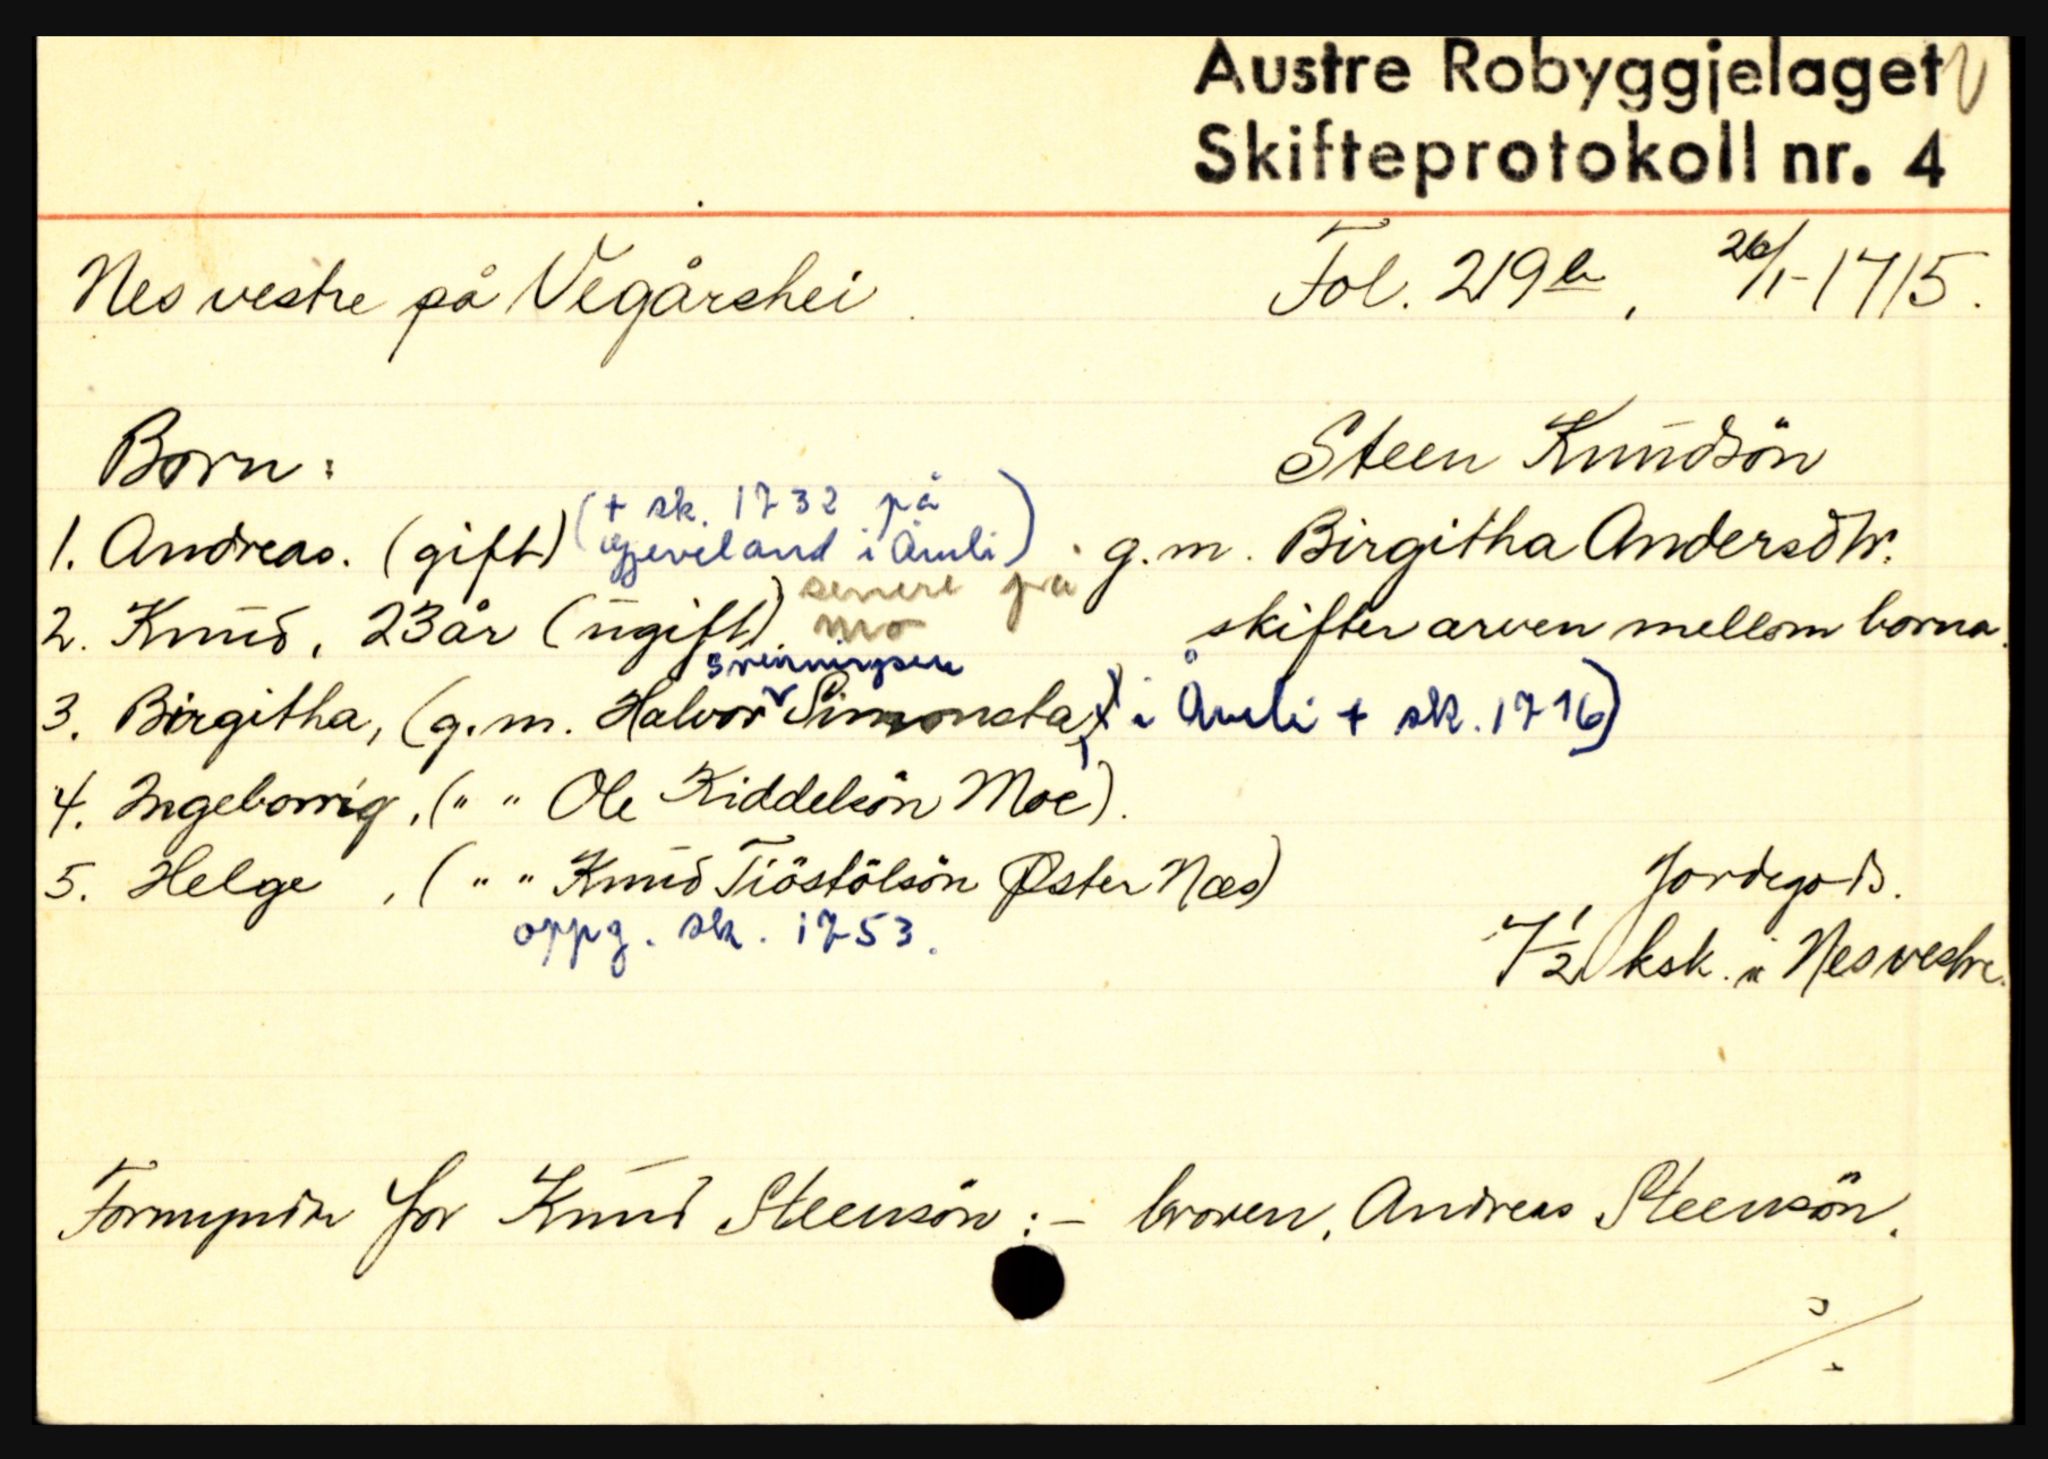 Austre Robyggjelaget
Skifteprotokoll nr. 4
Nes vestre på Vegårshei. Fol. 219b, 26/1-1715.
Born: Steen Knudsön
1. Andreas. (gift) (+ sk. 1732 på
Gjeveland i Åmli) g.m. Birgitha Andersdtr.
2. Knud, 23 år (ugift). senere på
Mo skifter arven mellom borna.
3. Birgitha, (g.m. Halvor Svenningsen Simonsta) i Åmli + sk. 1716)
4. Ingeborrig, (" " Ole Kiddelsön Moe).
5. Helge, (" " Knud Tiöstölsön Øster Næs) Jordegods.
oppg. sk. 1753. 7 1/2 ksk. i Nes vestre.
Formyndr for Knud Steensön :- broren, Andreas Steensön.